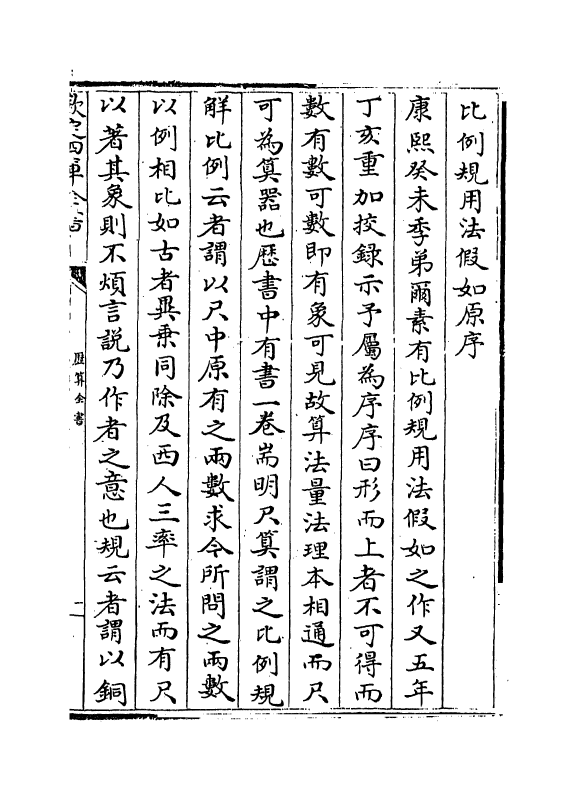 比例規用法假如原序
康熙癸未季弟爾素有比例規用法假如之作又五年
丁亥重加挍錄示予屬為序序曰形而上者不可得而
數有數可數即有象可見故算法量法理本相通而尺
可為算器也歷書中有書一卷耑明尺算謂之比例規
解比例云者謂以尺中原有之兩數求今所問之兩數
以例相比如古者異乗同除及西人三率之法而有尺
以著其象則不煩言說乃作者之意也規云者謂以銅
欽定四庫全書
歴算全書